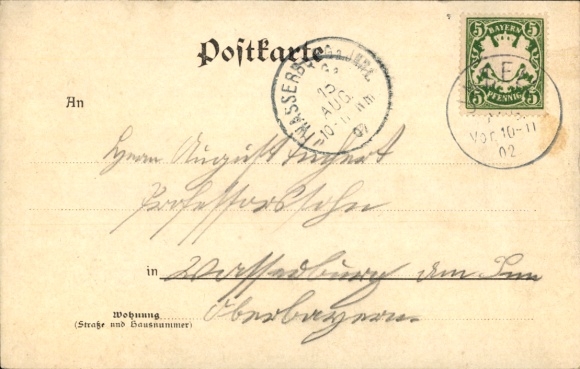 Postkarte
WASSERBURG a. INN.
15
AUG.
10-11 NM
02
5 BAYERN 5
5 PFENNIG 5
Vor 10-11
02
An
Herrn August
Professorssohn
in Wasserburg am Inn
Oberbayern.
Wohnung
(Straße und Hausnummer)